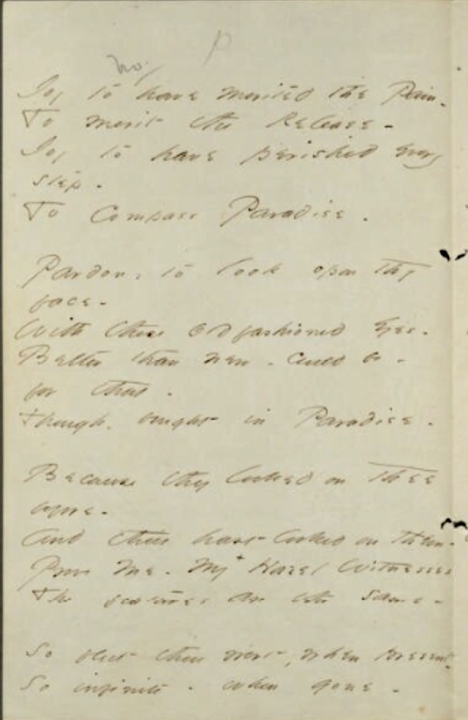 Joy to have merited the Pain -
To merit the Release -
Joy to have perished every
step -
To Compass Paradise -
Pardon - to look upon thy
face -
With these old fashioned Eyes -
Better than new - could be -
for that -
Though bought in Paradise -
Because they looked on Thee
before -
And thou hast looked on them -
Prove Me - My Hazel Witnesses
The features are the same -
So fleet thou wert, when present -
So infinite - when gone -